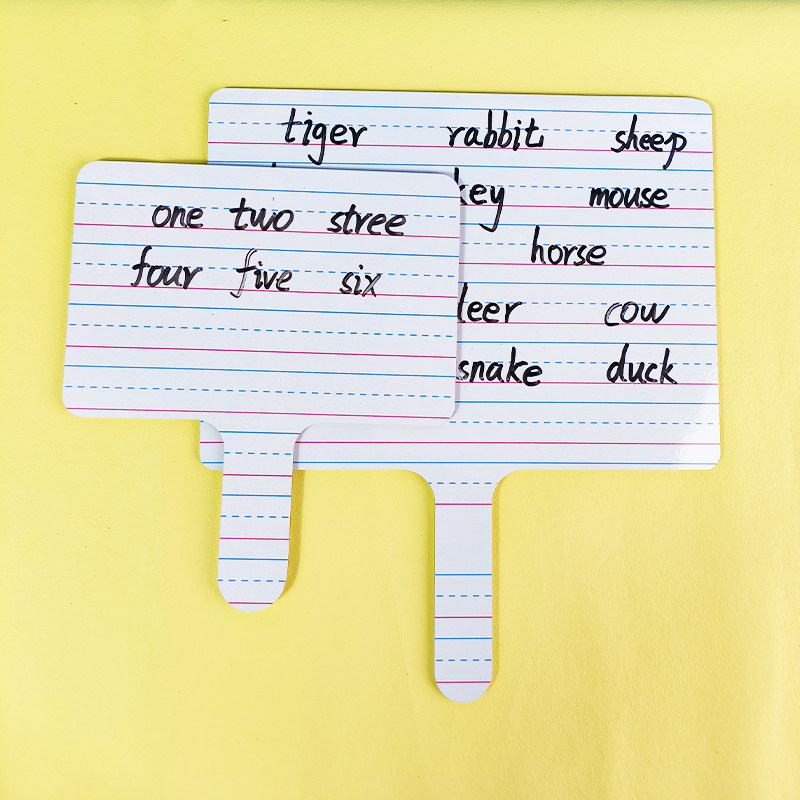 tiger rabbit sheep
key mouse
horse
leer cow
snake duck
one two stree
four five six